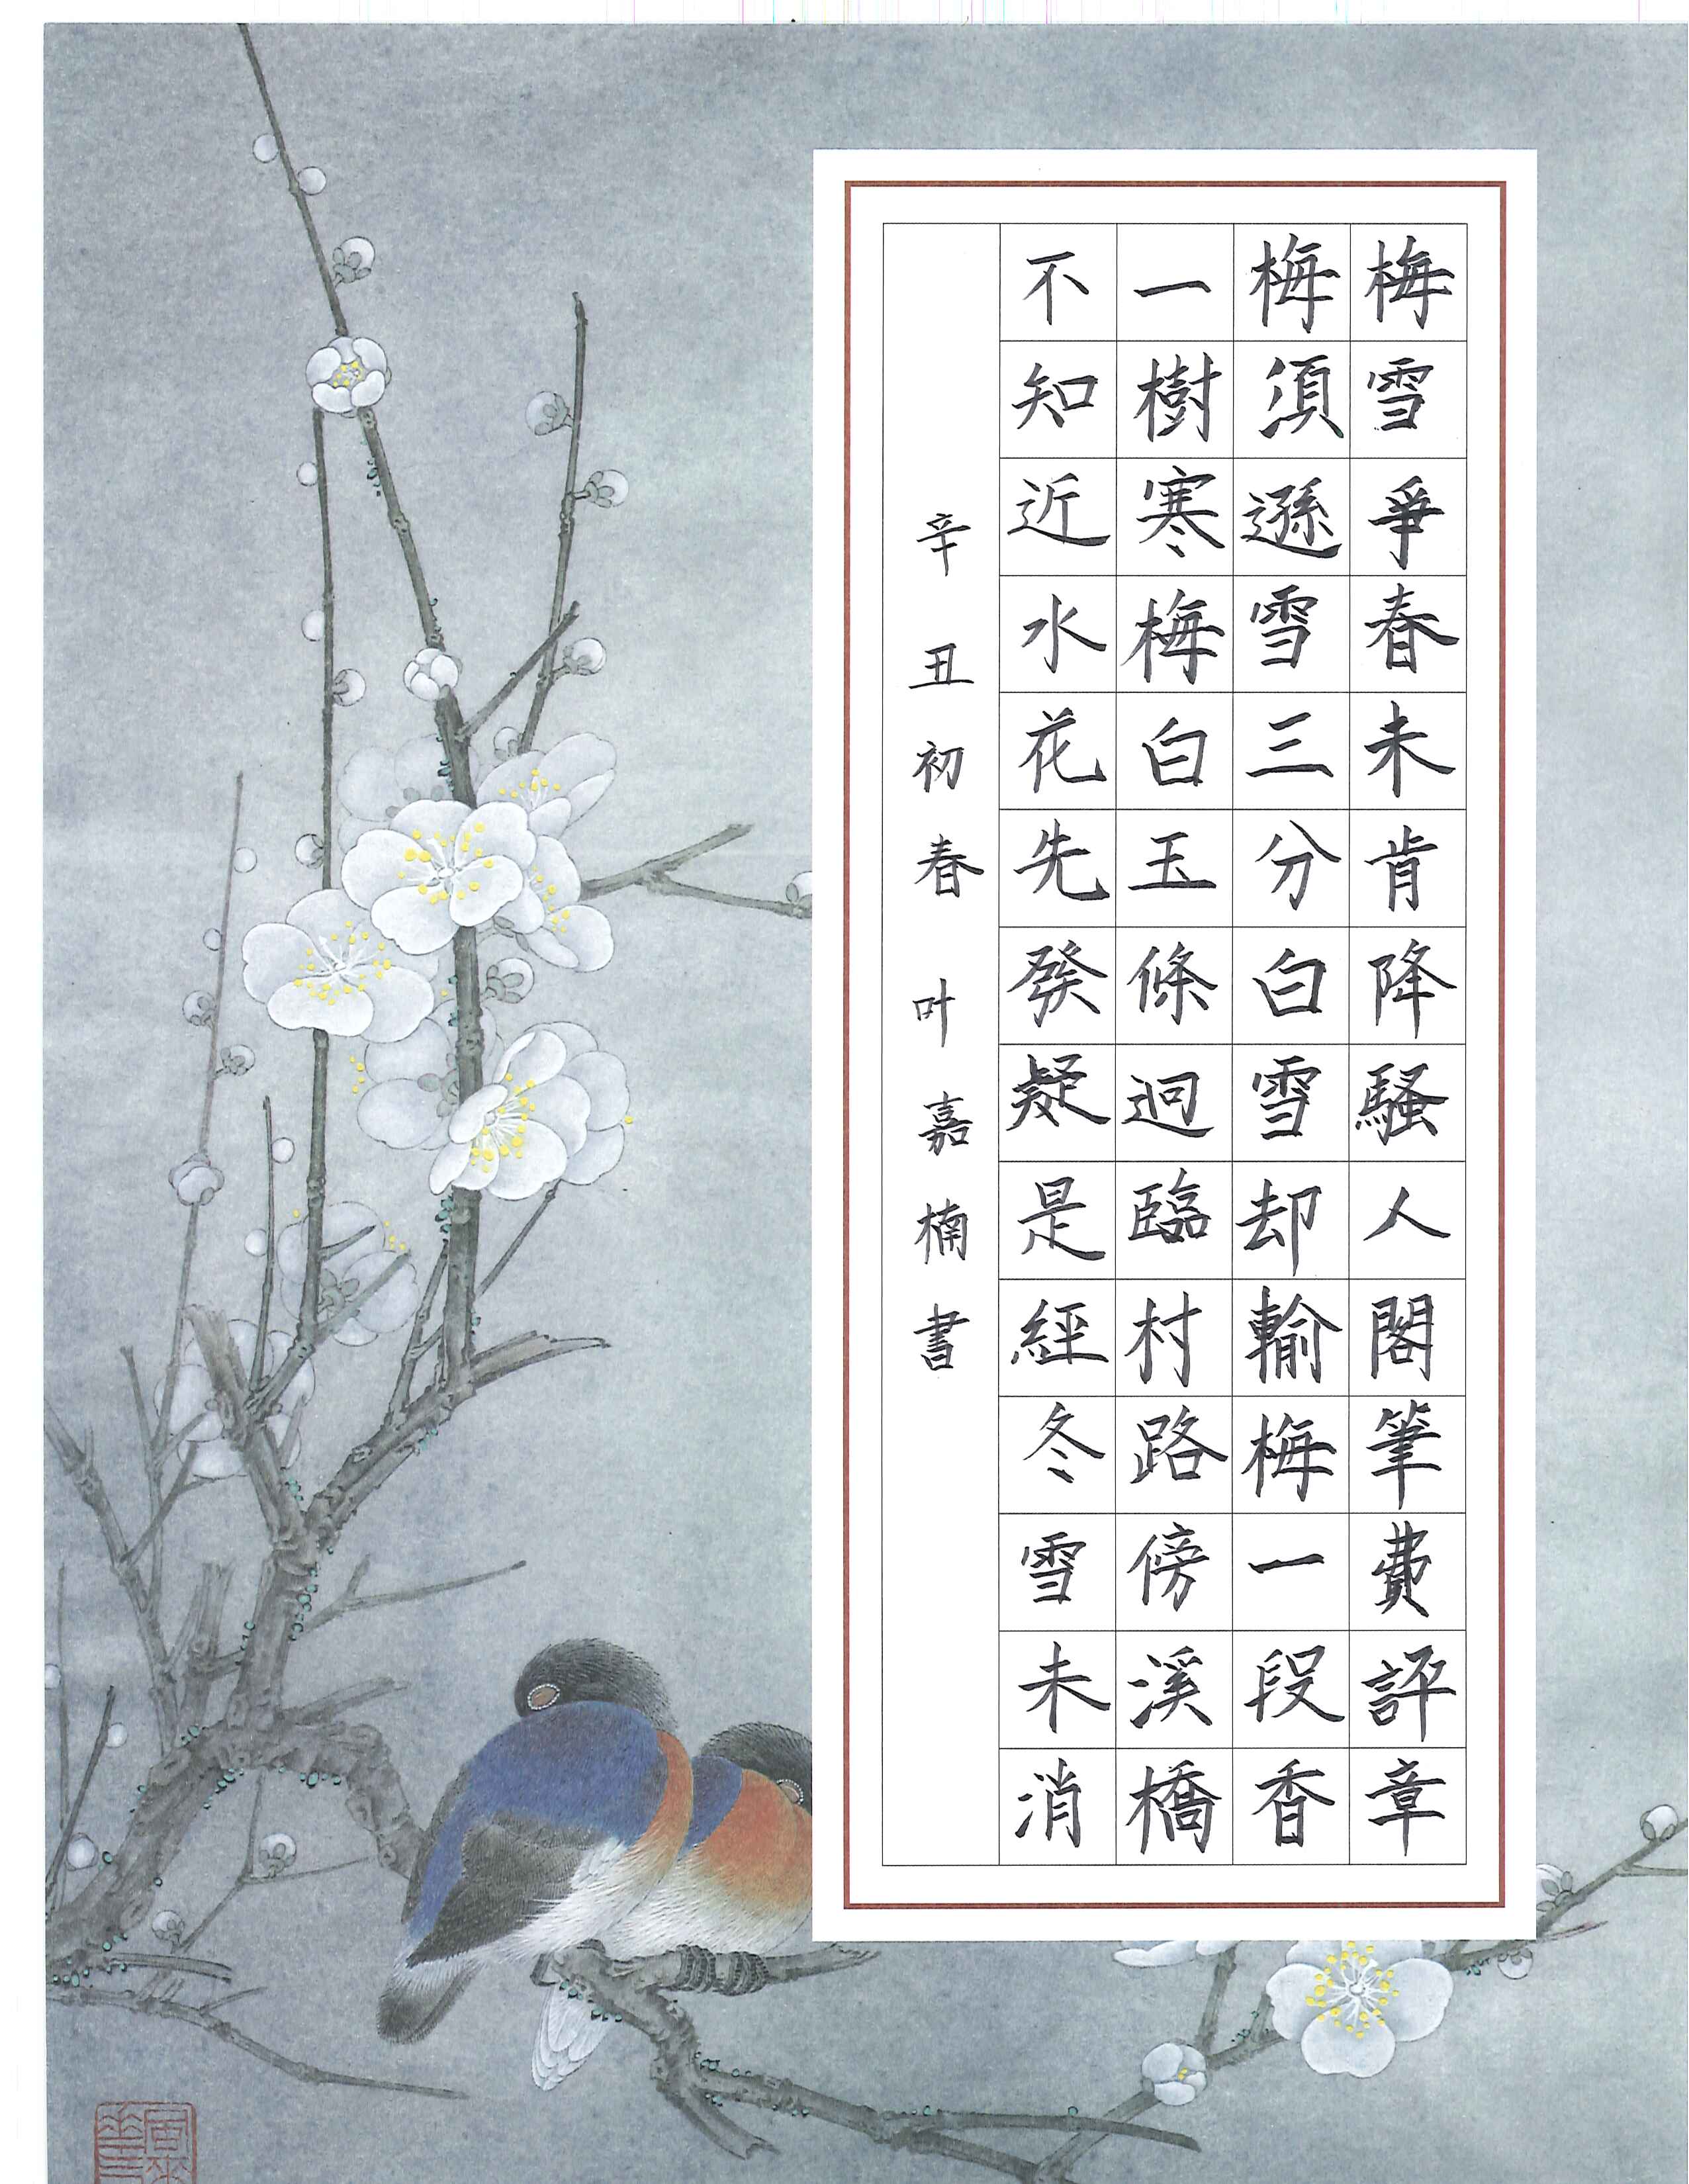 梅雪爭春未肯降騷人閣筆費評章
梅須遜雪三分白雪却輸梅一段香
一樹寒梅白玉條迥臨村路傍溪橋
不知近水花先發疑是經冬雪未消
辛丑初春叶嘉楠書